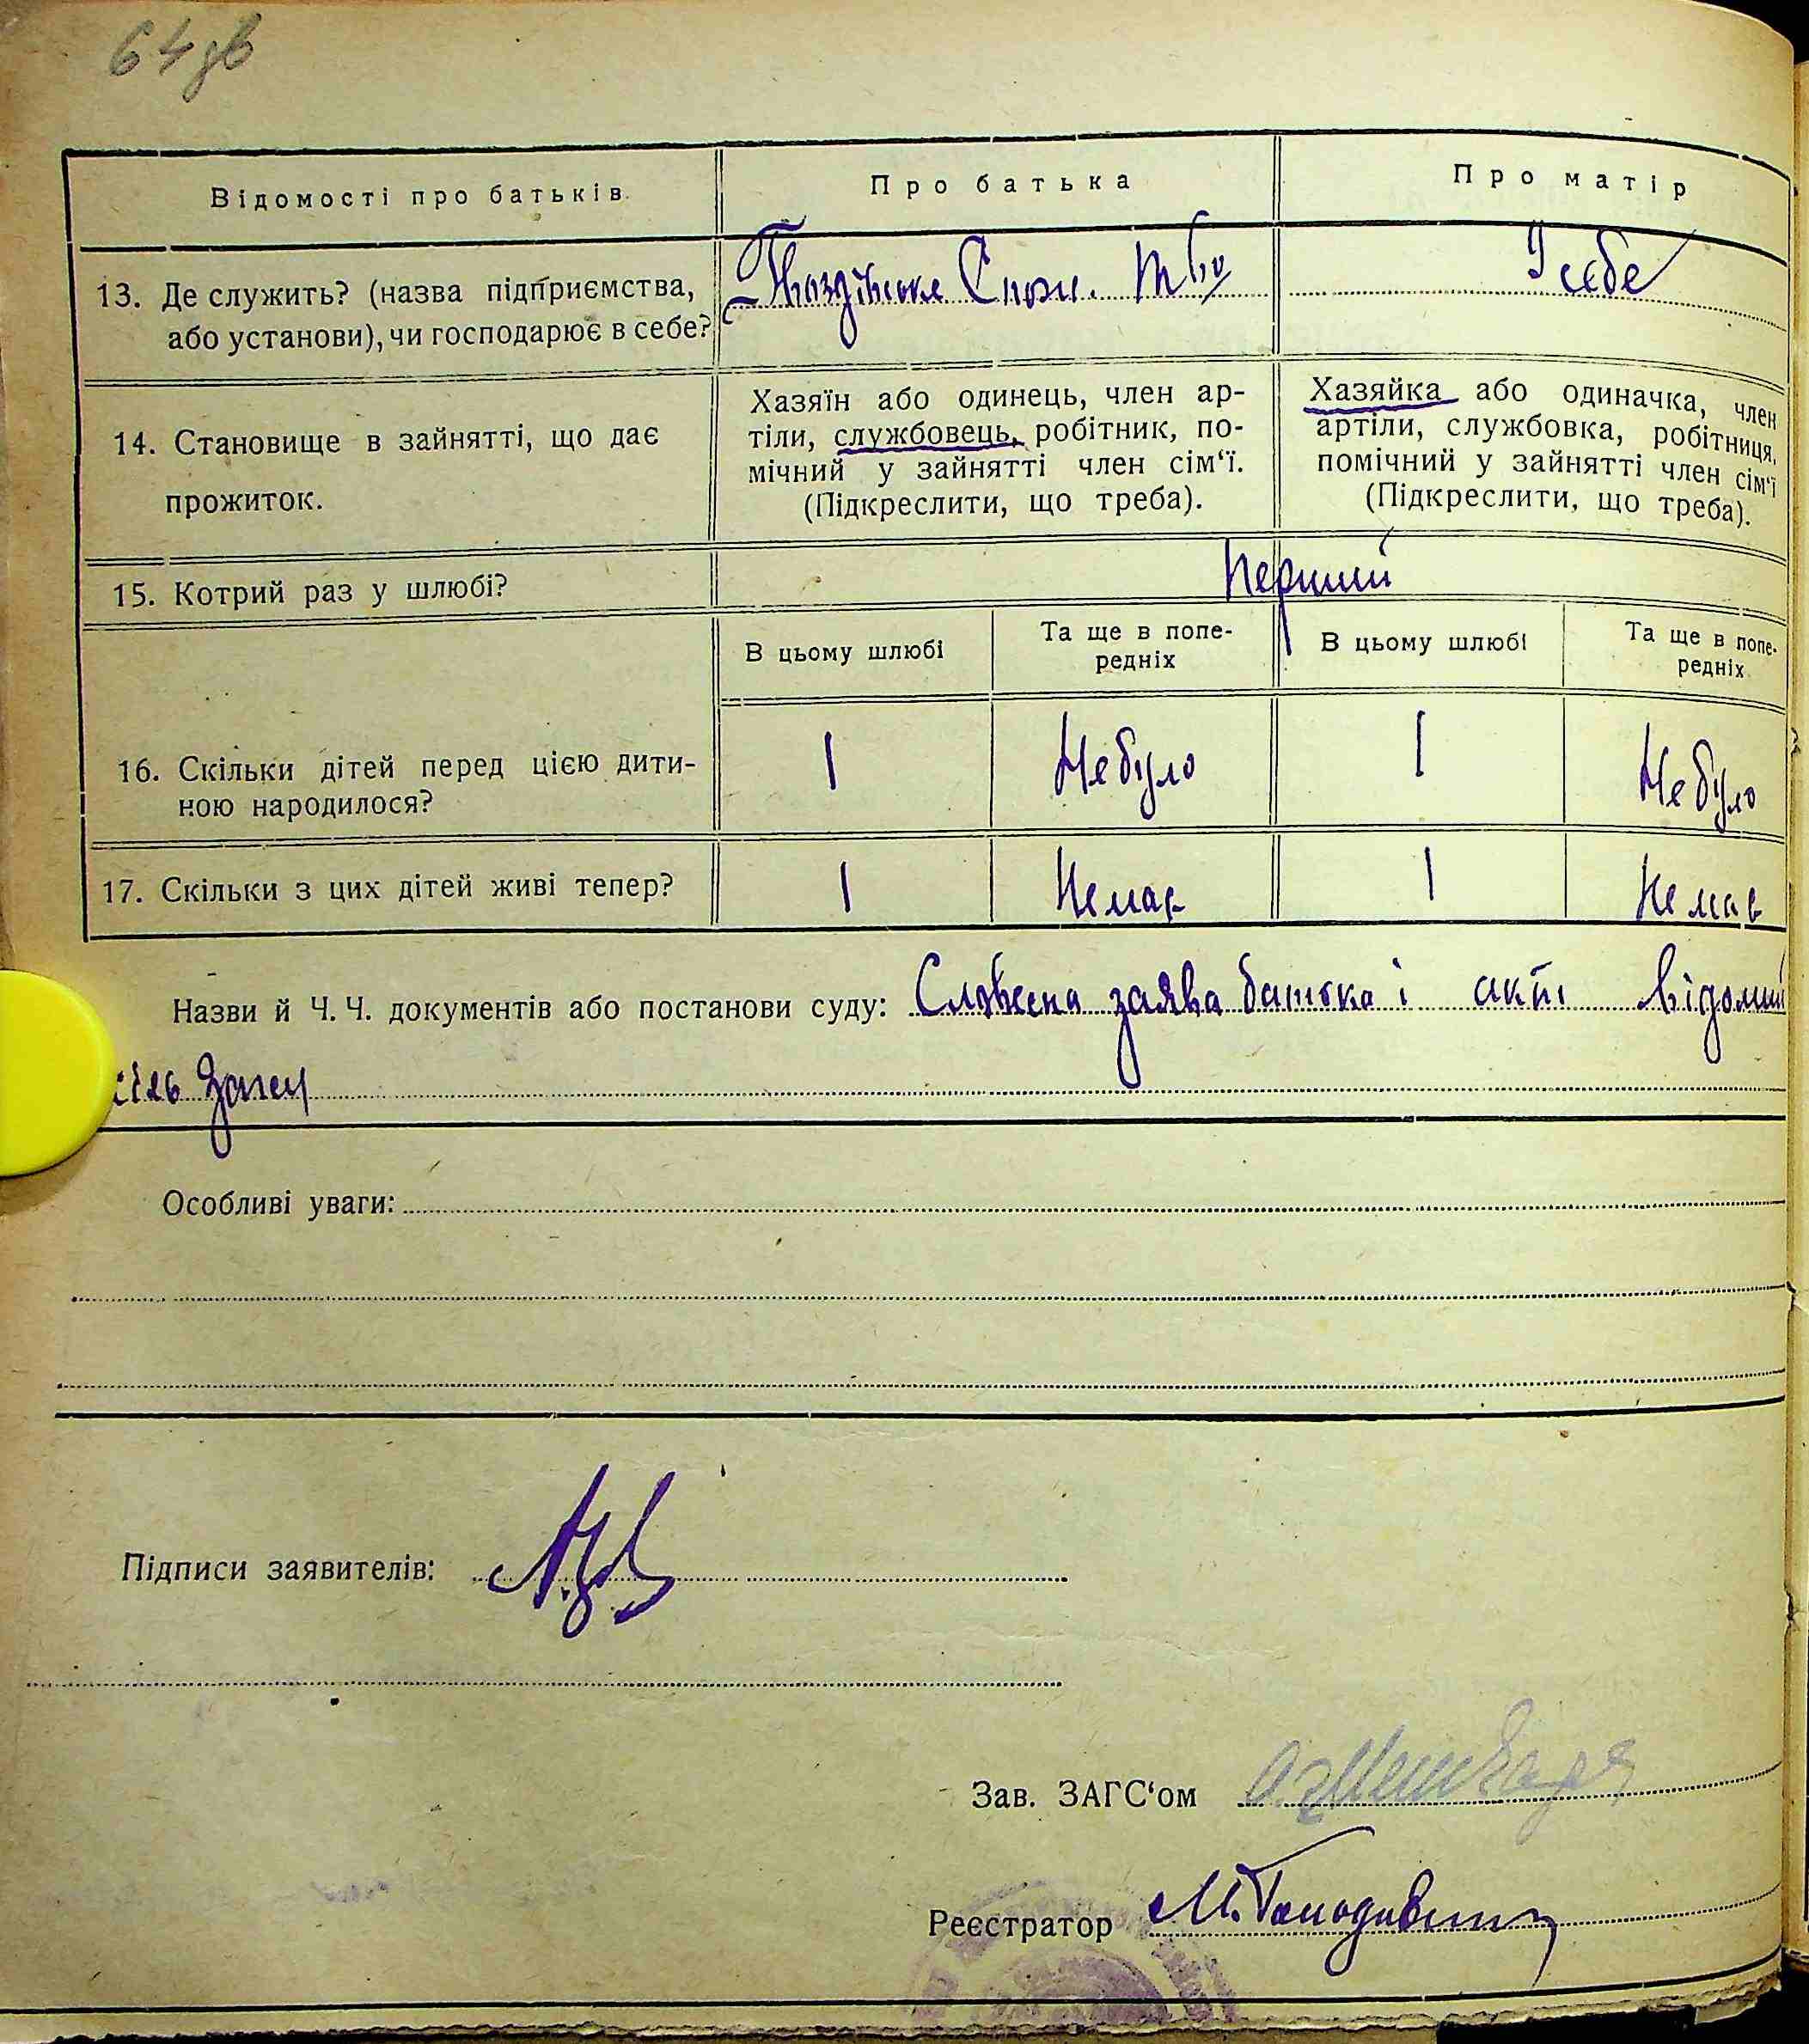 64 зв
Відомості про батьків
Про батька
Про матір
13. Де служить? (назва підприємства, або установи), чи господарює в себе?
Спож. Т-во
У себе
14. Становище в зайнятті, що дає прожиток.
Хазяїн або одинець, член ар-
тіли, службовець, робітник, по-
мічний у зайнятті член сім‘ї.
(Підкреслити, що треба).
Хазяйка або одиначка, член
артіли, службовка, робітниця,
помічний у зайнятті член сім‘ї
(Підкреслити, що треба).
15. Котрий раз у шлюбі?
Перший
В цьому шлюбі
Та ще в попе-
редніх
В цьому шлюбі
Та ще в попе-
редніх
16. Скільки дітей перед цією дити-
ною народилося?
1
Небуло
1
Небуло
17. Скільки з цих дітей живі тепер?
1
Немає
1
Немає
Назви й Ч. Ч. документів або постанови суду: Словесна заява батька і акт
Загсу
Особливі уваги:
Підписи заявителів:
Зав. ЗАГС‘ом
Реєстратор М.